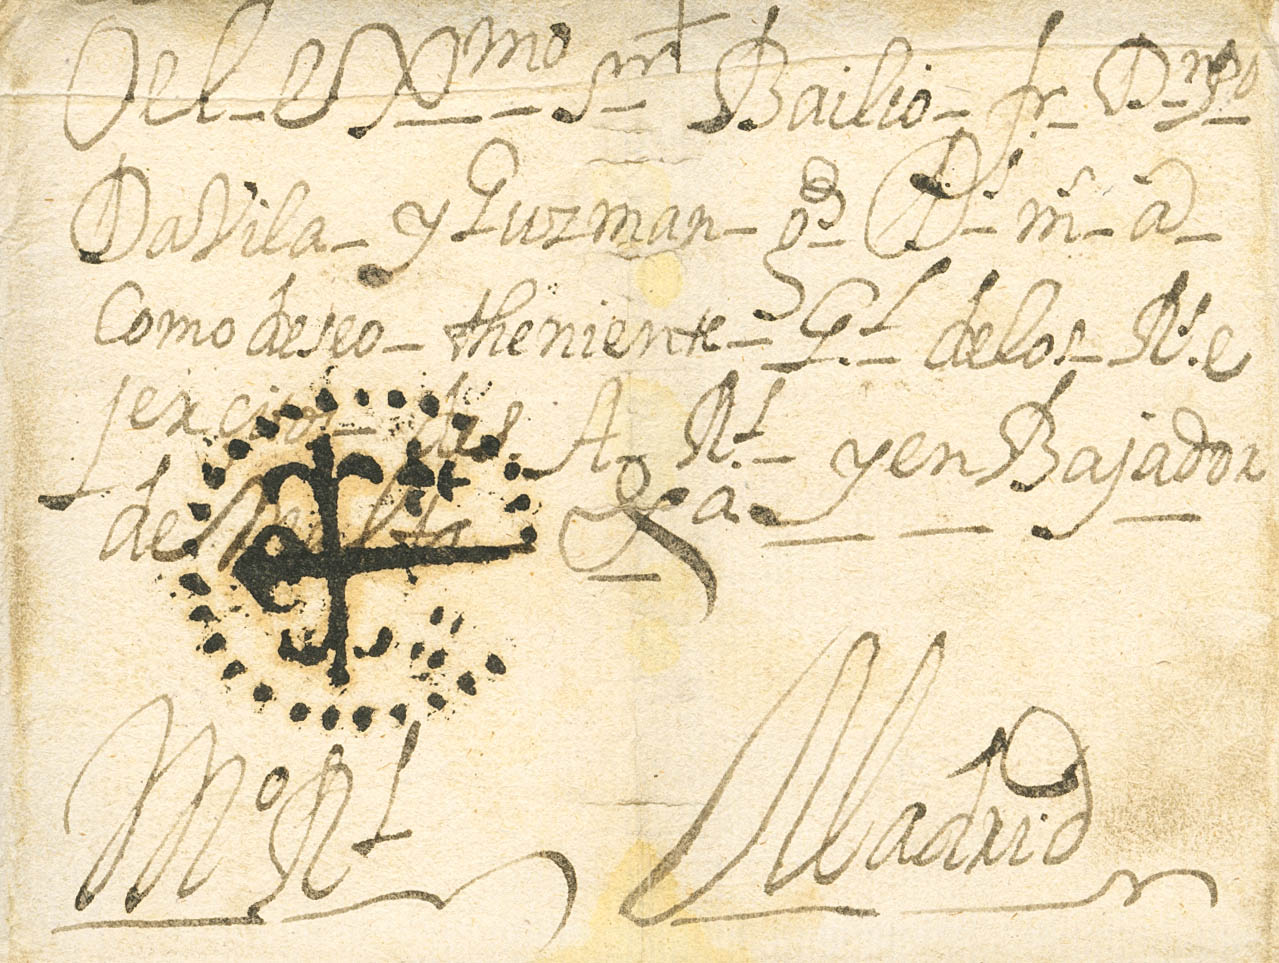 Del exmo sr Bailio fr Dn
Davila y Guzman gd Ds ms as
Como deseo theniente Gl delos Rs e
jexcitos de s. A. Rl y enBajador
de Malta &a
Mo Rl Madrid